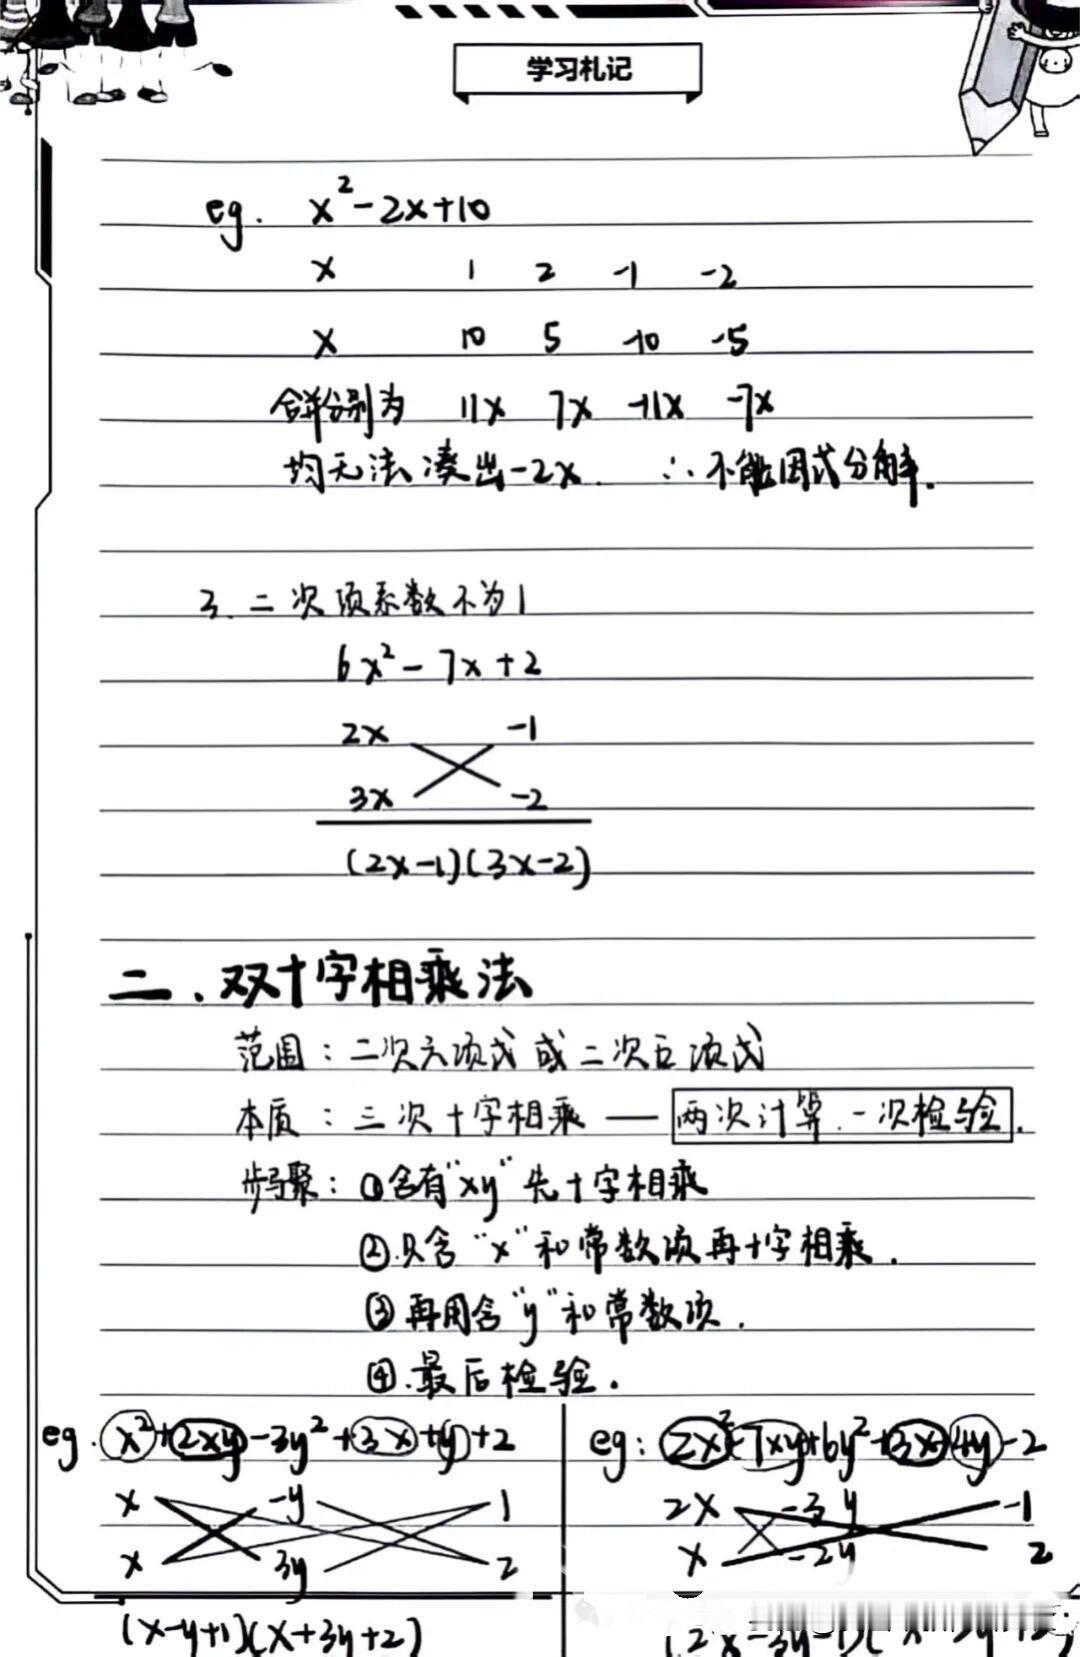 学习札记
eg. x²-2x+10
x 1 2 -1 -2
x 10 5 -10 -5
合并分别为 11x 7x -11x -7x
均无法凑出-2x. ∴不能因式分解.
3. 二次项系数不为1
6x²-7x+2
2x -1
3x -2
(2x-1)(3x-2)
二、双十字相乘法
范围：二次六项式或二次五项式
本质：三次十字相乘——两次计算.一次检验.
步骤：①含有"xy"先十字相乘
②只含"x"和常数项再十字相乘.
③再用含"y"和常数项.
④.最后检验.
eg. x²+2xy-3y²+3x+y+2
x -y 1
x 3y 2
(x-y+1)(x+3y+2)
eg: 2x²-7xy+6y²+3x-4y-2
2x -3y -1
x -2y 2
(2x-3y-1)(x-2y+2)